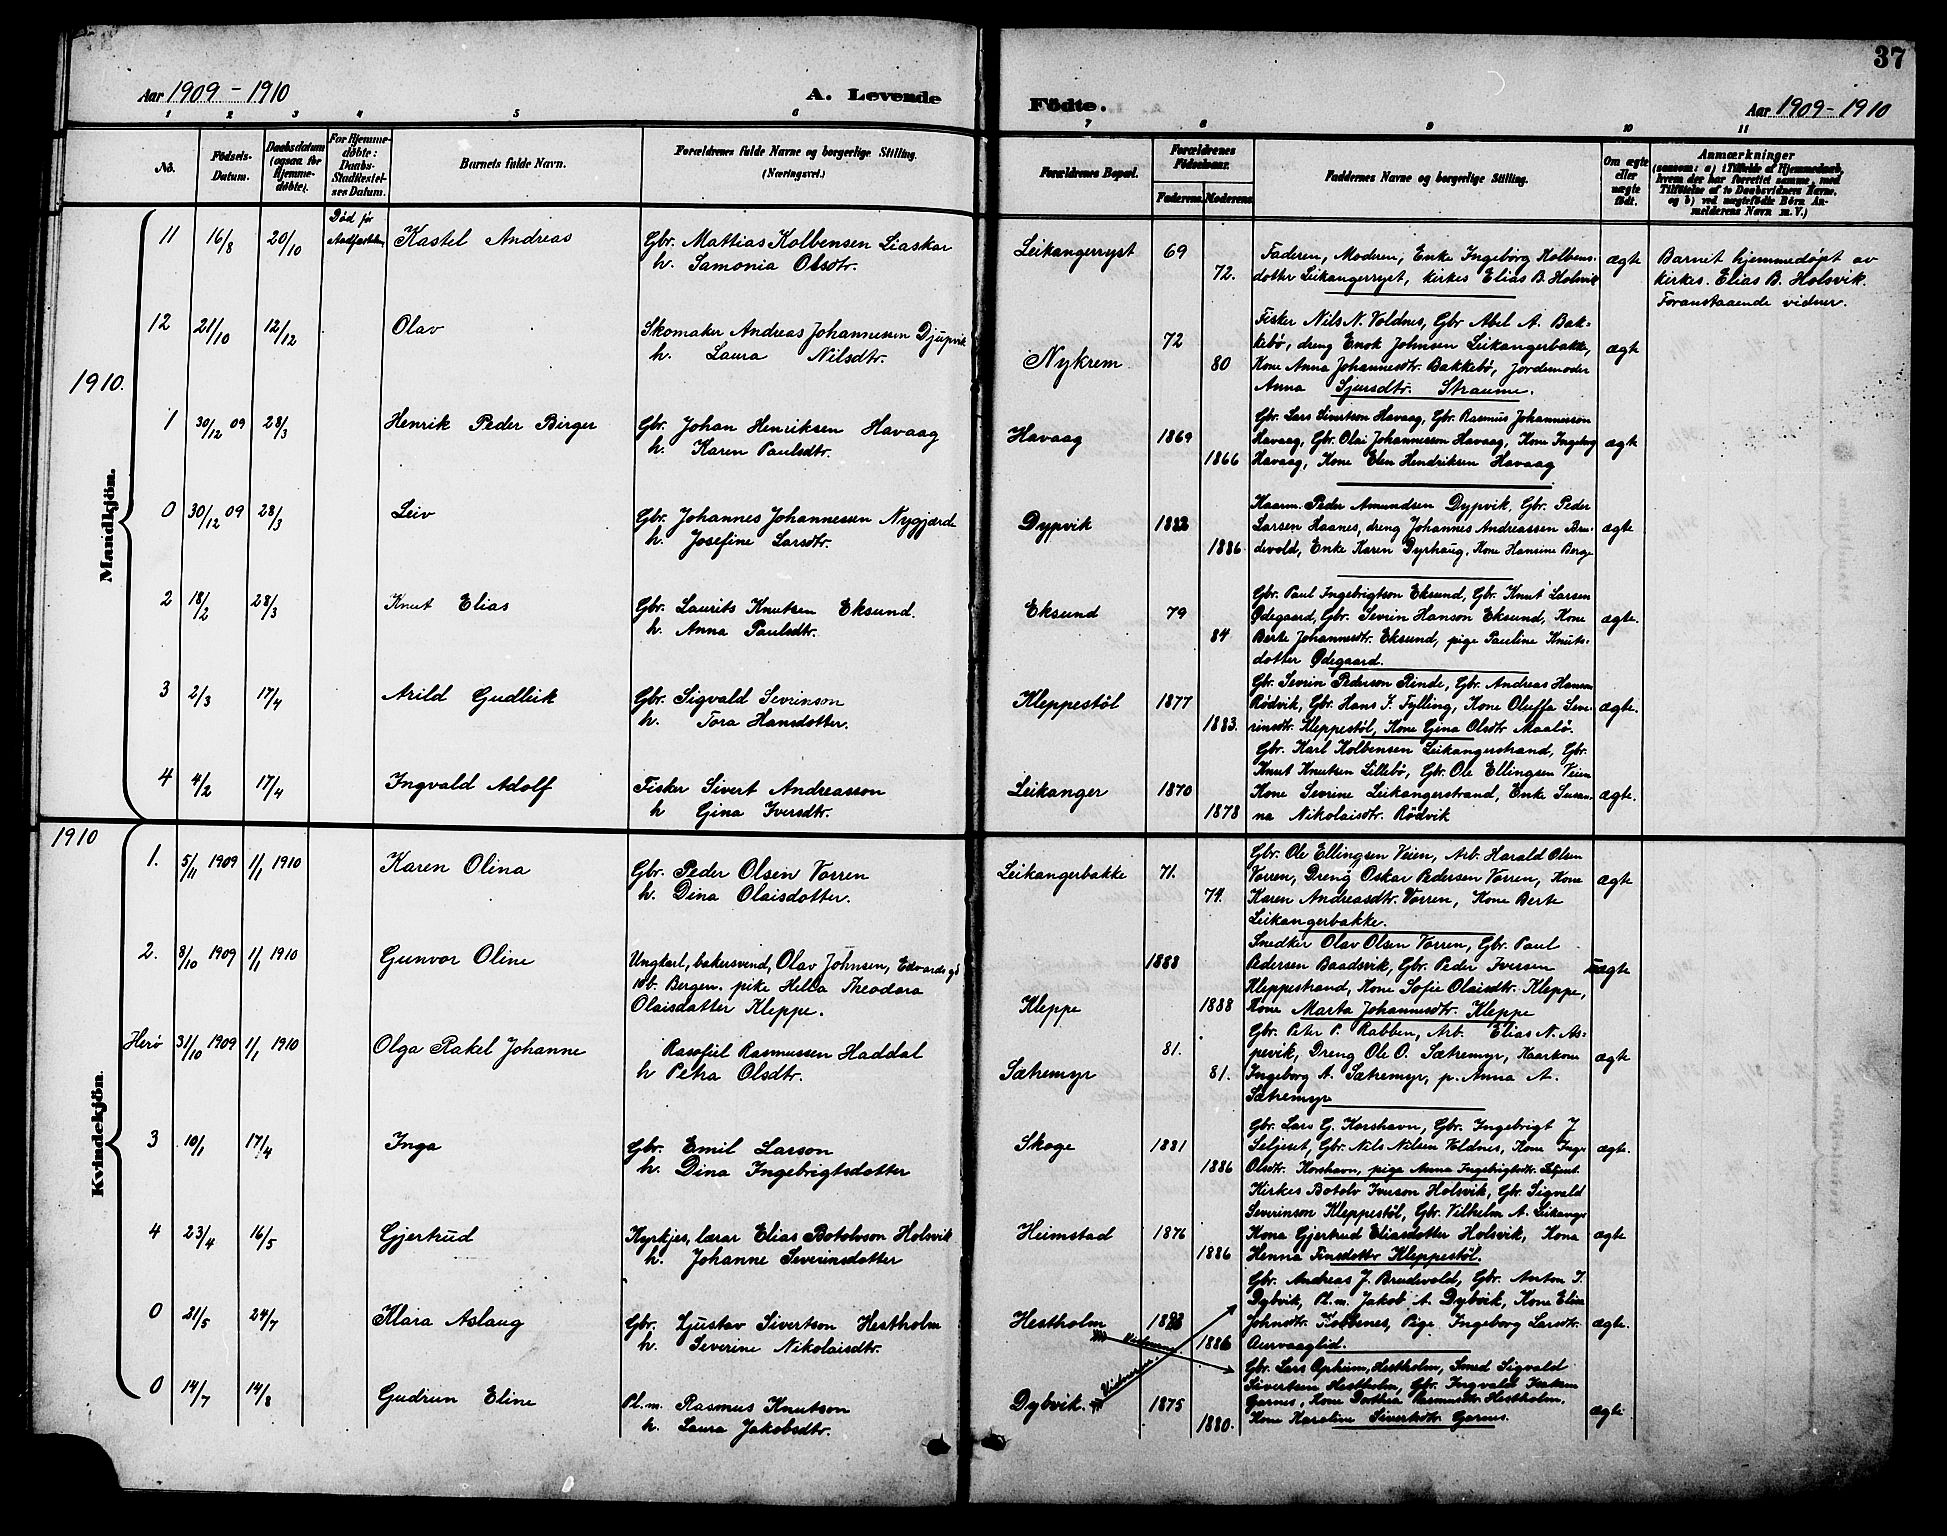 37
Aar 1909 - 1910
A. Levende
Födte.
Aar 1909 - 1910
1 2 3 4 5 6 7 8 9 10 11
No.
Födsels-
Datum.
Daabsdatum
(ogsaa for
Hjemme-
döbte).
For Hjemme-
döbte:
Daabs-
Stadfæstel-
ses Datum.
Barnets fulde Navn.
Forældrenes fulde Navne og borgerlige Stilling.
(Næringsvei.)
Forældrenes Bopæl.
Forældrenes
Födselsaar.
Faderens. Moderens.
Faddernes Navne og borgerlige Stilling.
Om ægte
eller
uægte
födt.
Anmærkninger
(saasom: a) i Tilfælde af Hjemmedaab,
hvem der har forrettet samme, med
Tilföielse af to Daabsvidners Navne,
og b) ved uægtefödte Börn An-
melderens Navn m. V.)
Mandkjön.
11 16/8 20/10 Död før
Kastel Andreas
Gbr. Mattias Kolbensen Liaskar
h. Samonia Olsdtr.
Leikangerryst 69
72.
Faderen, Moderen, Enke Ingeborg Kolbens-
dotter Leikangerryst, kirkes Elias B. Holsvik
ægte
Barnet hjemmedøpt av
kirkes. Elias B. Holsvik.
Foranstaaende vidner.
12 21/10 12/12 Olav
Skomaker Andreas Johannessen Djupvik
h. Laura Nilsdtr.
Nykrem 72
80
Fisker Nils N. Voldnes, Gbr Abel A. Bak-
kebö, dreng Enok Johnsen Leikangerbakke,
Kone Anna Johannesdtr. Bakkebö, Jordemoder
Anna Sjursdtr. Straume.
ægte
1910.
1 30/12 09 28/3 Henrik Peder Birger
Gbr. Johan Henriksen Havaag
h. Karen Paulsdtr.
Havaag 1869
1866
Gbr. Lars Sivertson Havaag, Gbr. Rasmus Johannesson
Havaag, Gbr. Olai Johannesson Havaag, Kone Ingeborg
Havaag, Kone Elen Hendriksen Havaag
ægte
0 30/12 09 28/3 Leiv
Gbr. Johannes Johannessen Nygjærde
h. Josefine Larsdtr.
Dypvik
1886
Kaarm. Peder Amundsen Dypvik, Gbr. Peder
Larsen Haanes, dreng Johannes Andreassen Bru-
devold, Enke Karen Dyrhaug, Kone Hansine Berge
ægte
2 18/2 28/3 Knut Elias
Gbr. Laurits Knutsen Eksund.
h. Anna Paulsdtr.
Eksund 79
84
Gbr. Paul Ingebrigtson Eksund, Gbr. Knut Larsen
Ødegaard, Gbr. Sevrin Hanson Eksund, Kone
Berte Johannesdtr. Eksund, pige Pauline Knuts-
dotter Ødegaard.
ægte.
3 2/3 17/4 Arild Gudleik
Gbr. Sigvald Sevrinson
h. Tora Hansdotter.
Kleppestöl 1877
1883.
Gbr. Sevrin Pederson Rinde, Gbr. Andreas Hanson
Rødvik, Gbr. Hans J. Fylling, Kone Oluffa Sev-
rinsdtr. Kleppestöl, Kone Gina Olsdtr Maalö.
ægte.
4 4/2 17/4 Ingvald Adolf
Fisker Sivert Andreasson
h Gina Iversdtr.
Leikanger 1870
1878
Gbr. Karl Kolbensen Leikangerstrand, Gbr.
Knut Knutsen Lillebö, Gbr. Ole Ellingsen Veien
Kone Sevrine Leikangerstrand, Enke Susan-
na Nikolaisdtr. Rödvik
ægte.
1910
Kvindekjön.
1. 5/11 1909 1/1 1910 Karen Olina
Gbr. Peder Olsen Vorren
h. Dina Olaisdotter.
Leikangerbakke 71.
74.
Gbr. Ole Ellingsen Veien, Arb. Harald Olsen
Vorren, Dreng Oskar Pedersen Vorren, Kone
Karen Andreasdtr. Vorren, Kone Berte
Leikangerbakke.
ægte
2. 8/10 1909 1/1 1910 Gunvor Oline
Ungkarl, bakersvend, Olav Johnsen, Edvardsgd
10b. Bergen. pike Helda Theodora
Olaisdatter Kleppe.
Kleppe 1888
1888
Snedker Olav Olsen Vorren, Gbr. Paul
Pedersen Baadsvik, Gbr. Peder Iversen
Kleppestrand, Kone Sofie Olaisdtr. Kleppe,
Kone Marta Johannesdtr. Kleppe
Uægte
Herö 31/10 1909 1/1 1910 Olga Rakel Johanne
Rasofiel Rasmussen Haddal
h Petra Olsdtr.
Sætremyr 81.
81.
Gbr. Peter P. Rabben, Arb. Elias N. As-
pevik, Dreng Ole O. Sætremyr, Kaarkone
Ingeborg A. Sætremyr, p. Anna A.
Sætremyr
ægte
3 10/1 17/4 Inga
Gbr. Emil Larson
h. Dina Ingebrigtsdotter
Skoge 1881
1886
Gbr. Lars G. Korshavn, Gbr. Ingebrigt J
Seljeset, Gbr. Nils Nilsen Voldnes, Kone Inger
Olsdtr. Korshavn, pige Anna Ingebrigtsdtr. Seljeset.
ægte.
4 23/4 16/5 Gjertrud
Kyrkjes, lærar Elias Botolvson Holsvik
h. Johanne Severinsdotter
Heimstad 1876
1886
Kirkes Botolv Iverson Holsvik, Gbr. Sigvald
Severinson Kleppestöl, Gbr. Vilhelm A. Leikanger
Kona Gjertrud Eliasdotter Holsvik, Kona
Henna Tinsdottr Kleppestöl.
ægte
0 21/5 24/7 Klara Aslaug
Gbr. Gustav Sivertson Hestholm
h. Severine Nikolaisdtr.
Hestholm
1886
Gbr. Andreas J. Brudevold, Gbr. Anton I.
Dybvik, Pl.m. Jakob A. Dybvik, Kone Elise
Johnsdtr. Kobbenes, Pige Ingeborg Larsdtr.
Aurvaaglid.
ægte.
Vidnene.
0 14/7 14/8 Gudrun Eline
Pl.m. Rasmus Knutson
h. Laura Jakobsdtr.
Dybvik. 1875
1880.
Gbr. Lars Opheim, Hestholm, Smed Sigvald
Sivertsen Hestholm, Gbr. Ingvald Knutsen
Garnes, Kone Dorthea Rasmusdtr. Hestholm.
Kone Karoline Sivertsdtr. Garnes.
ægte
Vidnene.